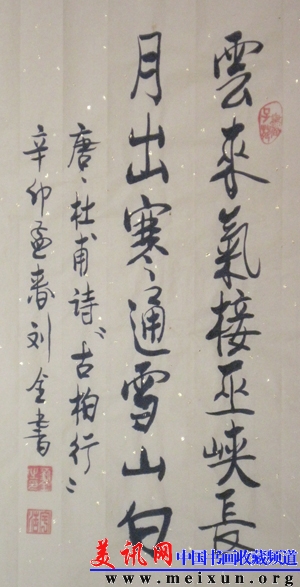 雲来氣接巫峡長
月出寒通雪山白
唐、杜甫诗“古柏行”
辛卯孟春刘金書
美讯网 中国书画收藏频道
www.meixun.org